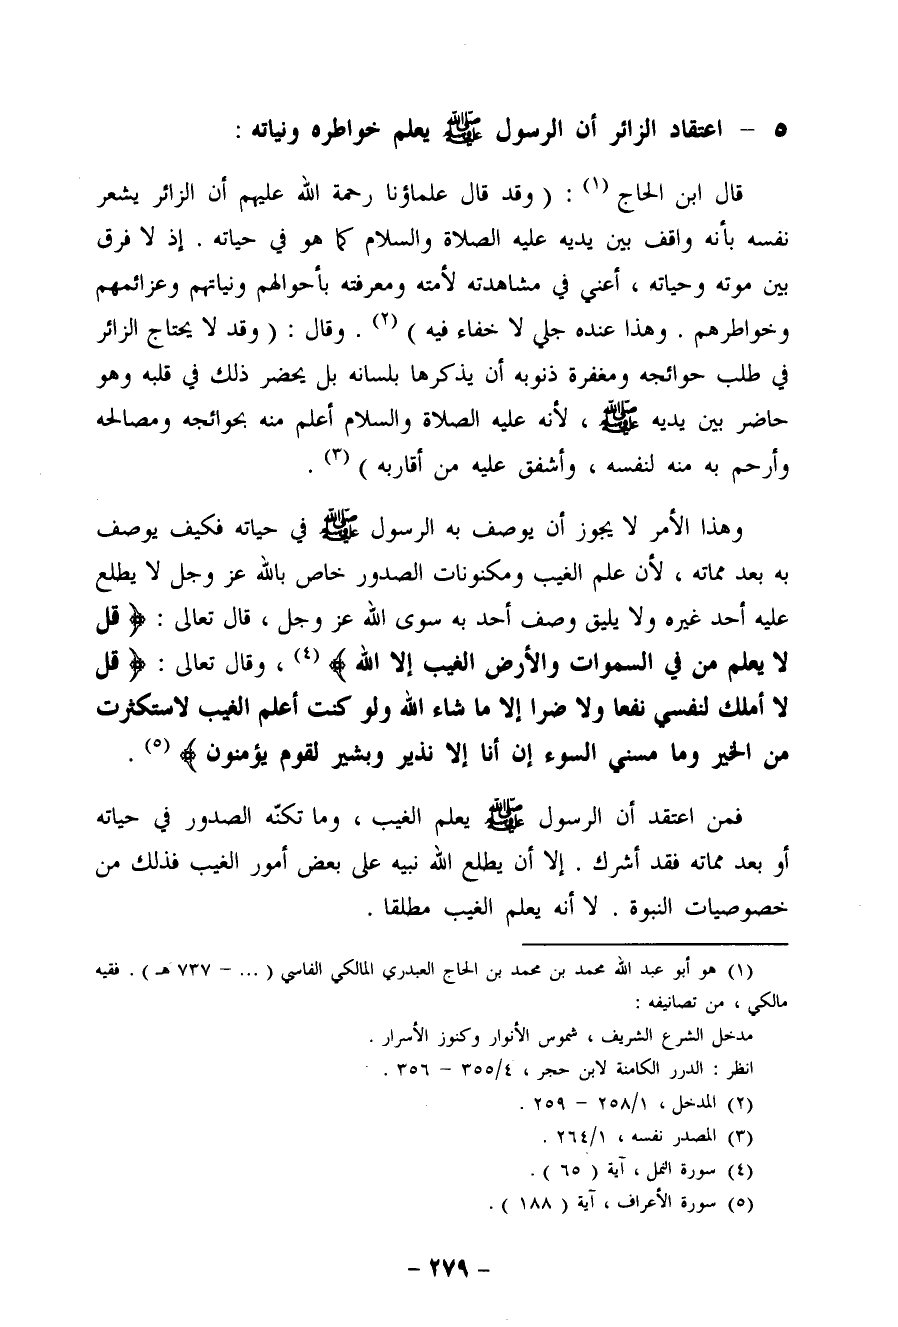 ٥ – اعتقاد الزائر أن الرسول ﷺ يعلم خواطره ونياته :
قال ابن الحاج (١) : ( وقد قال علماؤنا رحمة الله عليهم أن الزائر يشعر
نفسه بأنه واقف بين يديه عليه الصلاة والسلام كما هو في حياته . إذ لا فرق
بين موته وحياته ، أعني في مشاهدته لأمته ومعرفته بأحوالهم ونياتهم وعزائمهم
وخواطرهم . وهذا عنده جلي لا خفاء فيه ) (٢) . وقال : ( وقد لا يحتاج الزائر
في طلب حوائجه ومغفرة ذنوبه أن يذكرها بلسانه بل يحضر ذلك في قلبه وهو
حاضر بين يديه ﷺ ، لأنه عليه الصلاة والسلام أعلم منه بحوائجه ومصالحه
وأرحم به منه لنفسه ، وأشفق عليه من أقاربه ) (٣) .
وهذا الأمر لا يجوز أن يوصف به الرسول ﷺ في حياته فكيف يوصف
به بعد مماته ، لأن علم الغيب ومكنونات الصدور خاص بالله عز وجل لا يطلع
عليه أحد غيره ولا يليق وصف أحد به سوى الله عز وجل ، قال تعالى : ﴿ قل
لا يعلم من في السموات والأرض الغيب إلا الله ﴾ (٤) ، وقال تعالى : ﴿ قل
لا أملك لنفسي نفعا ولا ضرا إلا ما شاء الله ولو كنت أعلم الغيب لاستكثرت
من الخير وما مسني السوء إن أنا إلا نذير وبشير لقوم يؤمنون ﴾ (٥) .
فمن اعتقد أن الرسول ﷺ يعلم الغيب ، وما تكنّه الصدور في حياته
أو بعد مماته فقد أشرك . إلا أن يطلع الله نبيه على بعض أمور الغيب فذلك من
خصوصيات النبوة . لا أنه يعلم الغيب مطلقا .
(١) هو أبو عبد الله محمد بن محمد بن الحاج العبدري المالكي الفاسي ( ... – ٧٣٧ هـ ) . فقيه
مالكي ، من تصانيفه :
مدخل الشرع الشريف ، شموس الأنوار وكنوز الأسرار .
انظر : الدرر الكامنة لابن حجر ، ٣٥٥/٤ – ٣٥٦ .
(٢) المدخل ، ٢٥٨/١ – ٢٥٩ .
(٣) المصدر نفسه ، ٢٦٤/١ .
(٤) سورة النمل ، آية ( ٦٥ ) .
(٥) سورة الأعراف ، آية ( ١٨٨ ) .
– ٢٧٩ –